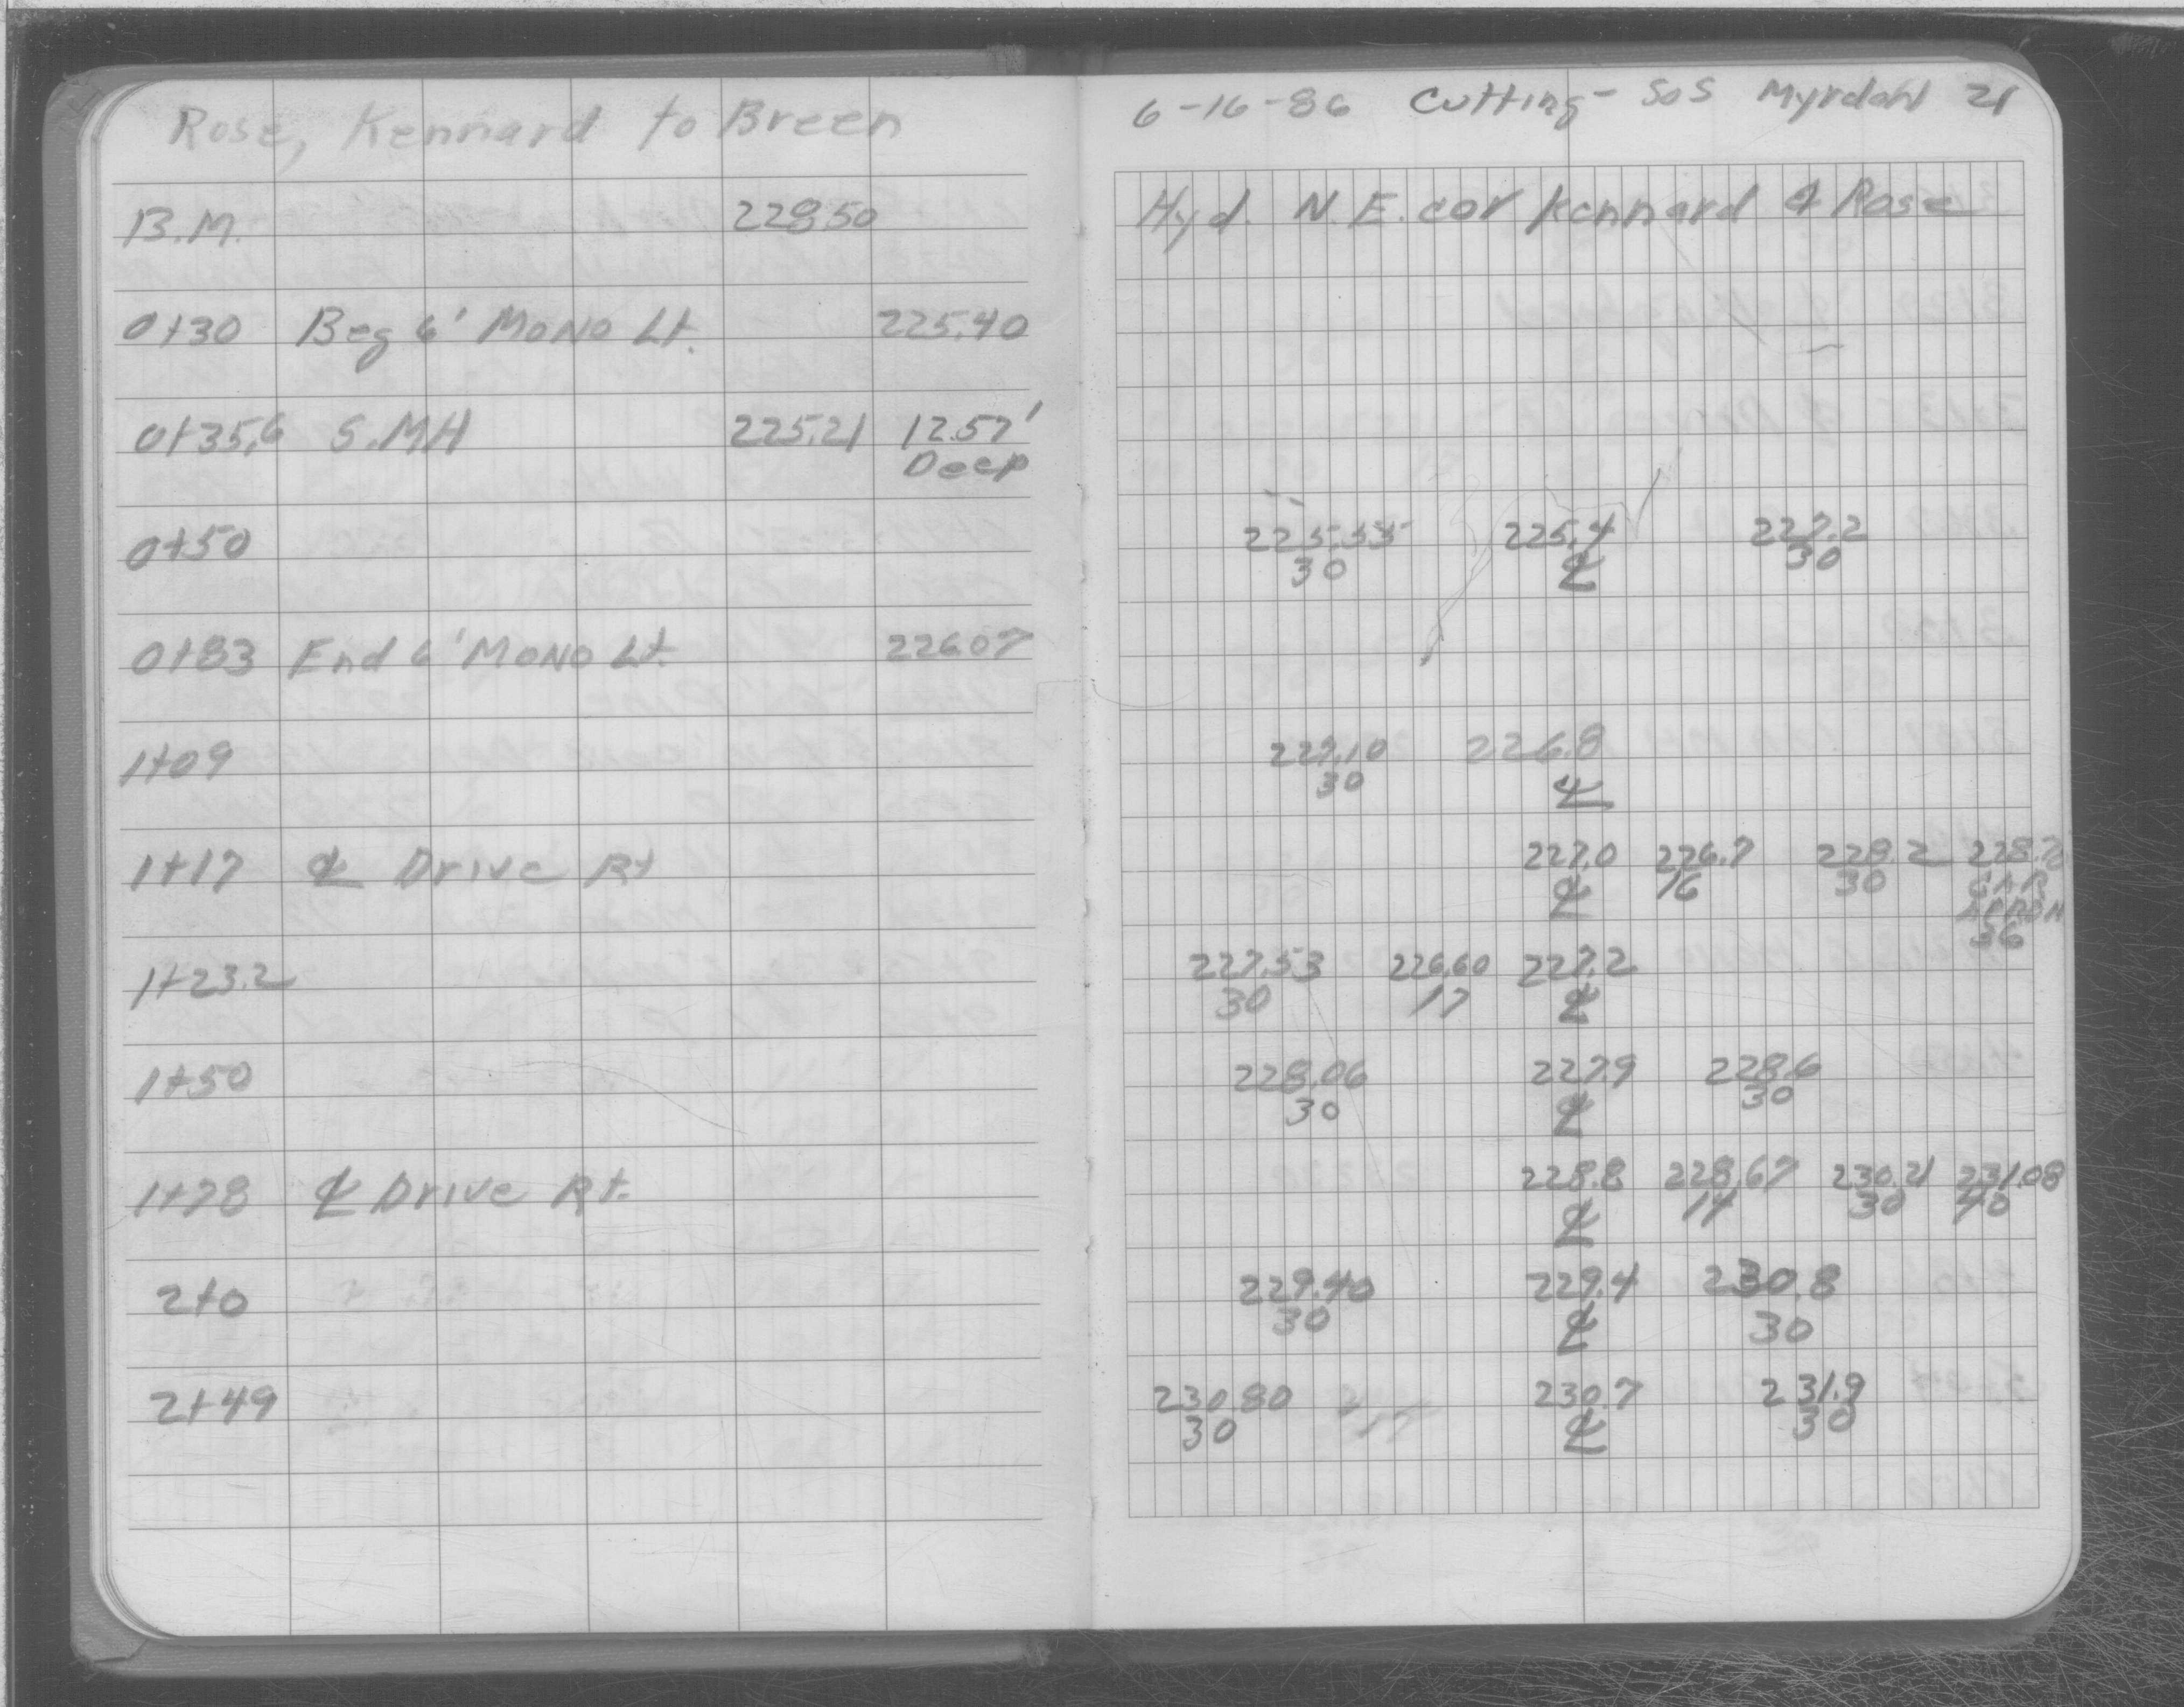 Rose, Kennard to Breen
B.M. 228.50
0+30 Beg 6' MONO Lt. 225.40
0+35.6 S.MH 225.21 12.57'
Deep
0+50
0+83 End 6' MONO Lt. 226.07
1+09
1+17 ℄ Drive Rt
1+23.2
1+50
1+78 ℄ Drive Rt.
2+0
2+49
6-16-86 Cutting- SOS Myrdahl 21
Hyd. N.E. cor Kennard & Rose
225.35 225.4 227.2
30 ℄ 30
227.10 226.8
30 ℄
227.0 226.7 228.2
℄ 16 30 GAR
APRON
36
227.53 226.60 227.2
30 17 ℄
228.06 227.9 228.6
30 ℄ 30
228.8 228.67 230.21 231.08
℄ 14 30 40
229.40 229.4 230.8
30 ℄ 30
230.80 230.7 231.9
30 ℄ 30